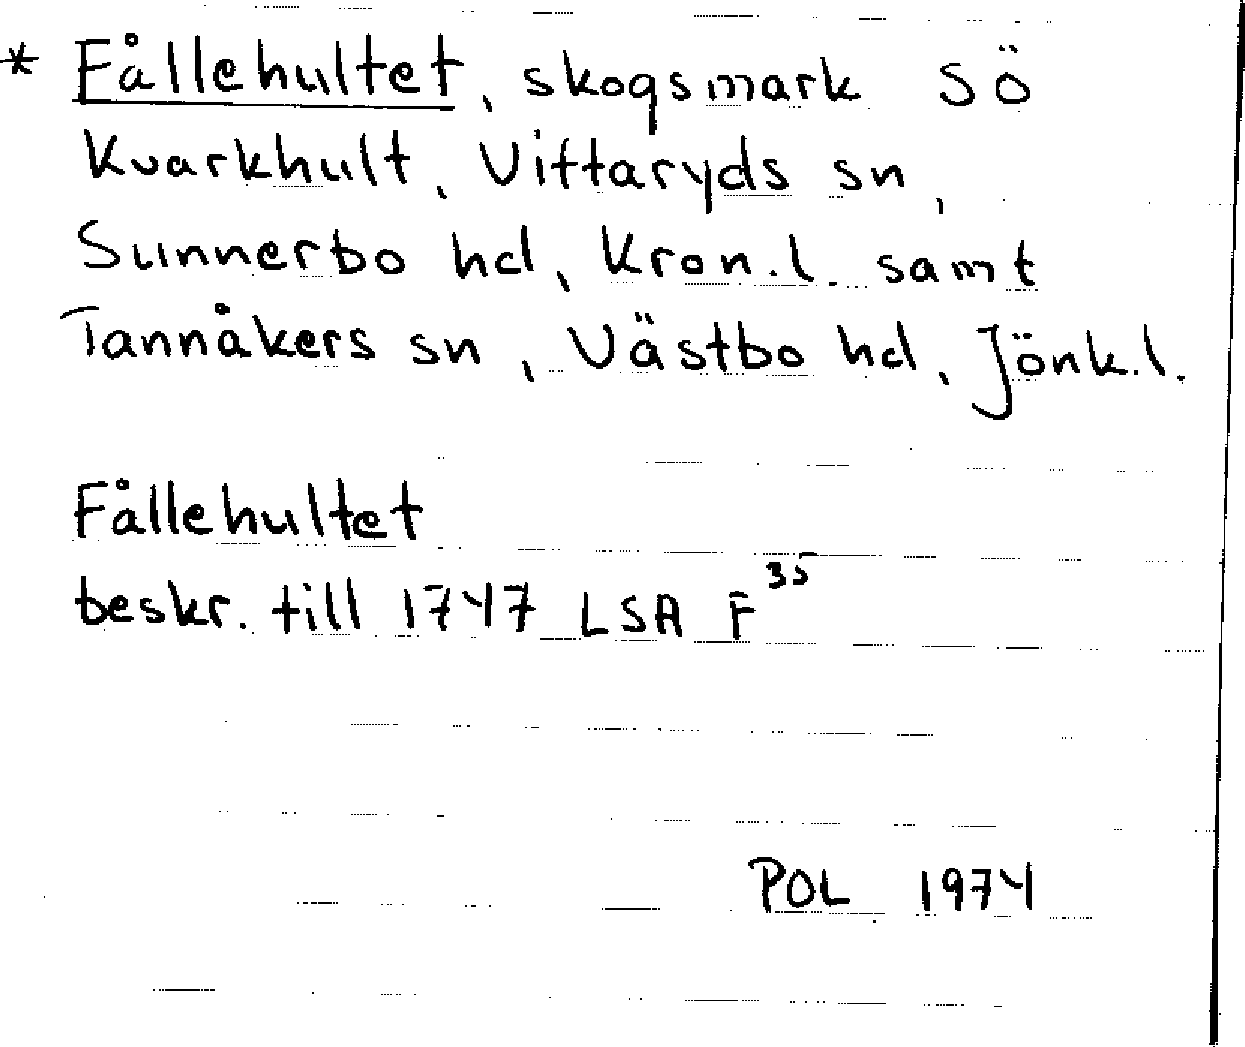 * Fållehultet, skogsmark SÖ
Kvarkhult, Vittaryds sn,
Sunnerbo hd, Kron.l. samt
Tannåkers sn, Västbo hd, Jönk.l.
Fållehultet
beskr. till 1747 LSA F³⁵
POL 1974